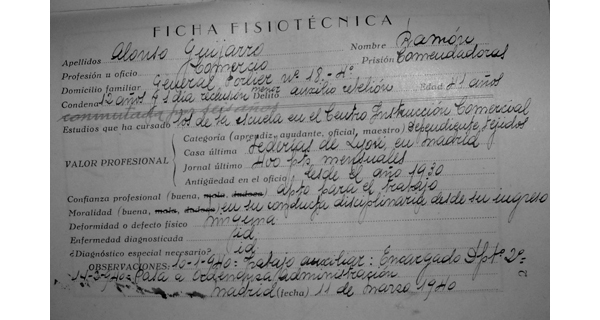 FICHA FISIOTÉCNICA
Apellidos Alonso Guijarro Nombre Ramón
Profesión u oficio Comercio Prisión Comendadoras
Domicilio familiar General Porlier nº 18,- 4º
Condena 12 años y 1 dia reclusión menor Delito auxilio rebelión Edad 41 años
conmutada por seis años
Estudios que ha cursado los de la escuela en el Centro Instrucción Comercial
VALOR PROFESIONAL
Categoría (aprendiz, ayudante, oficial, maestro) Dependiente, tejidos
Casa última Sederías de Lyon, en Madrid
Jornal último 400 pts mensuales
Antigüedad en el oficio desde el año 1930
Confianza profesional (buena, mala, dudosa) apto para el trabajo
Moralidad (buena, mala, dudosa) en su conducta disciplinaria desde su ingreso
Deformidad o defecto físico ninguna
Enfermedad diagnosticada id
¿Diagnóstico especial necesario? id
OBSERVACIONES: 10-1-940= Trabajo auxiliar: Encargado Dptº 2º=
14-3-940= Pasa a Ordenanza Administración
Madrid (fecha) 11 de marzo 1940